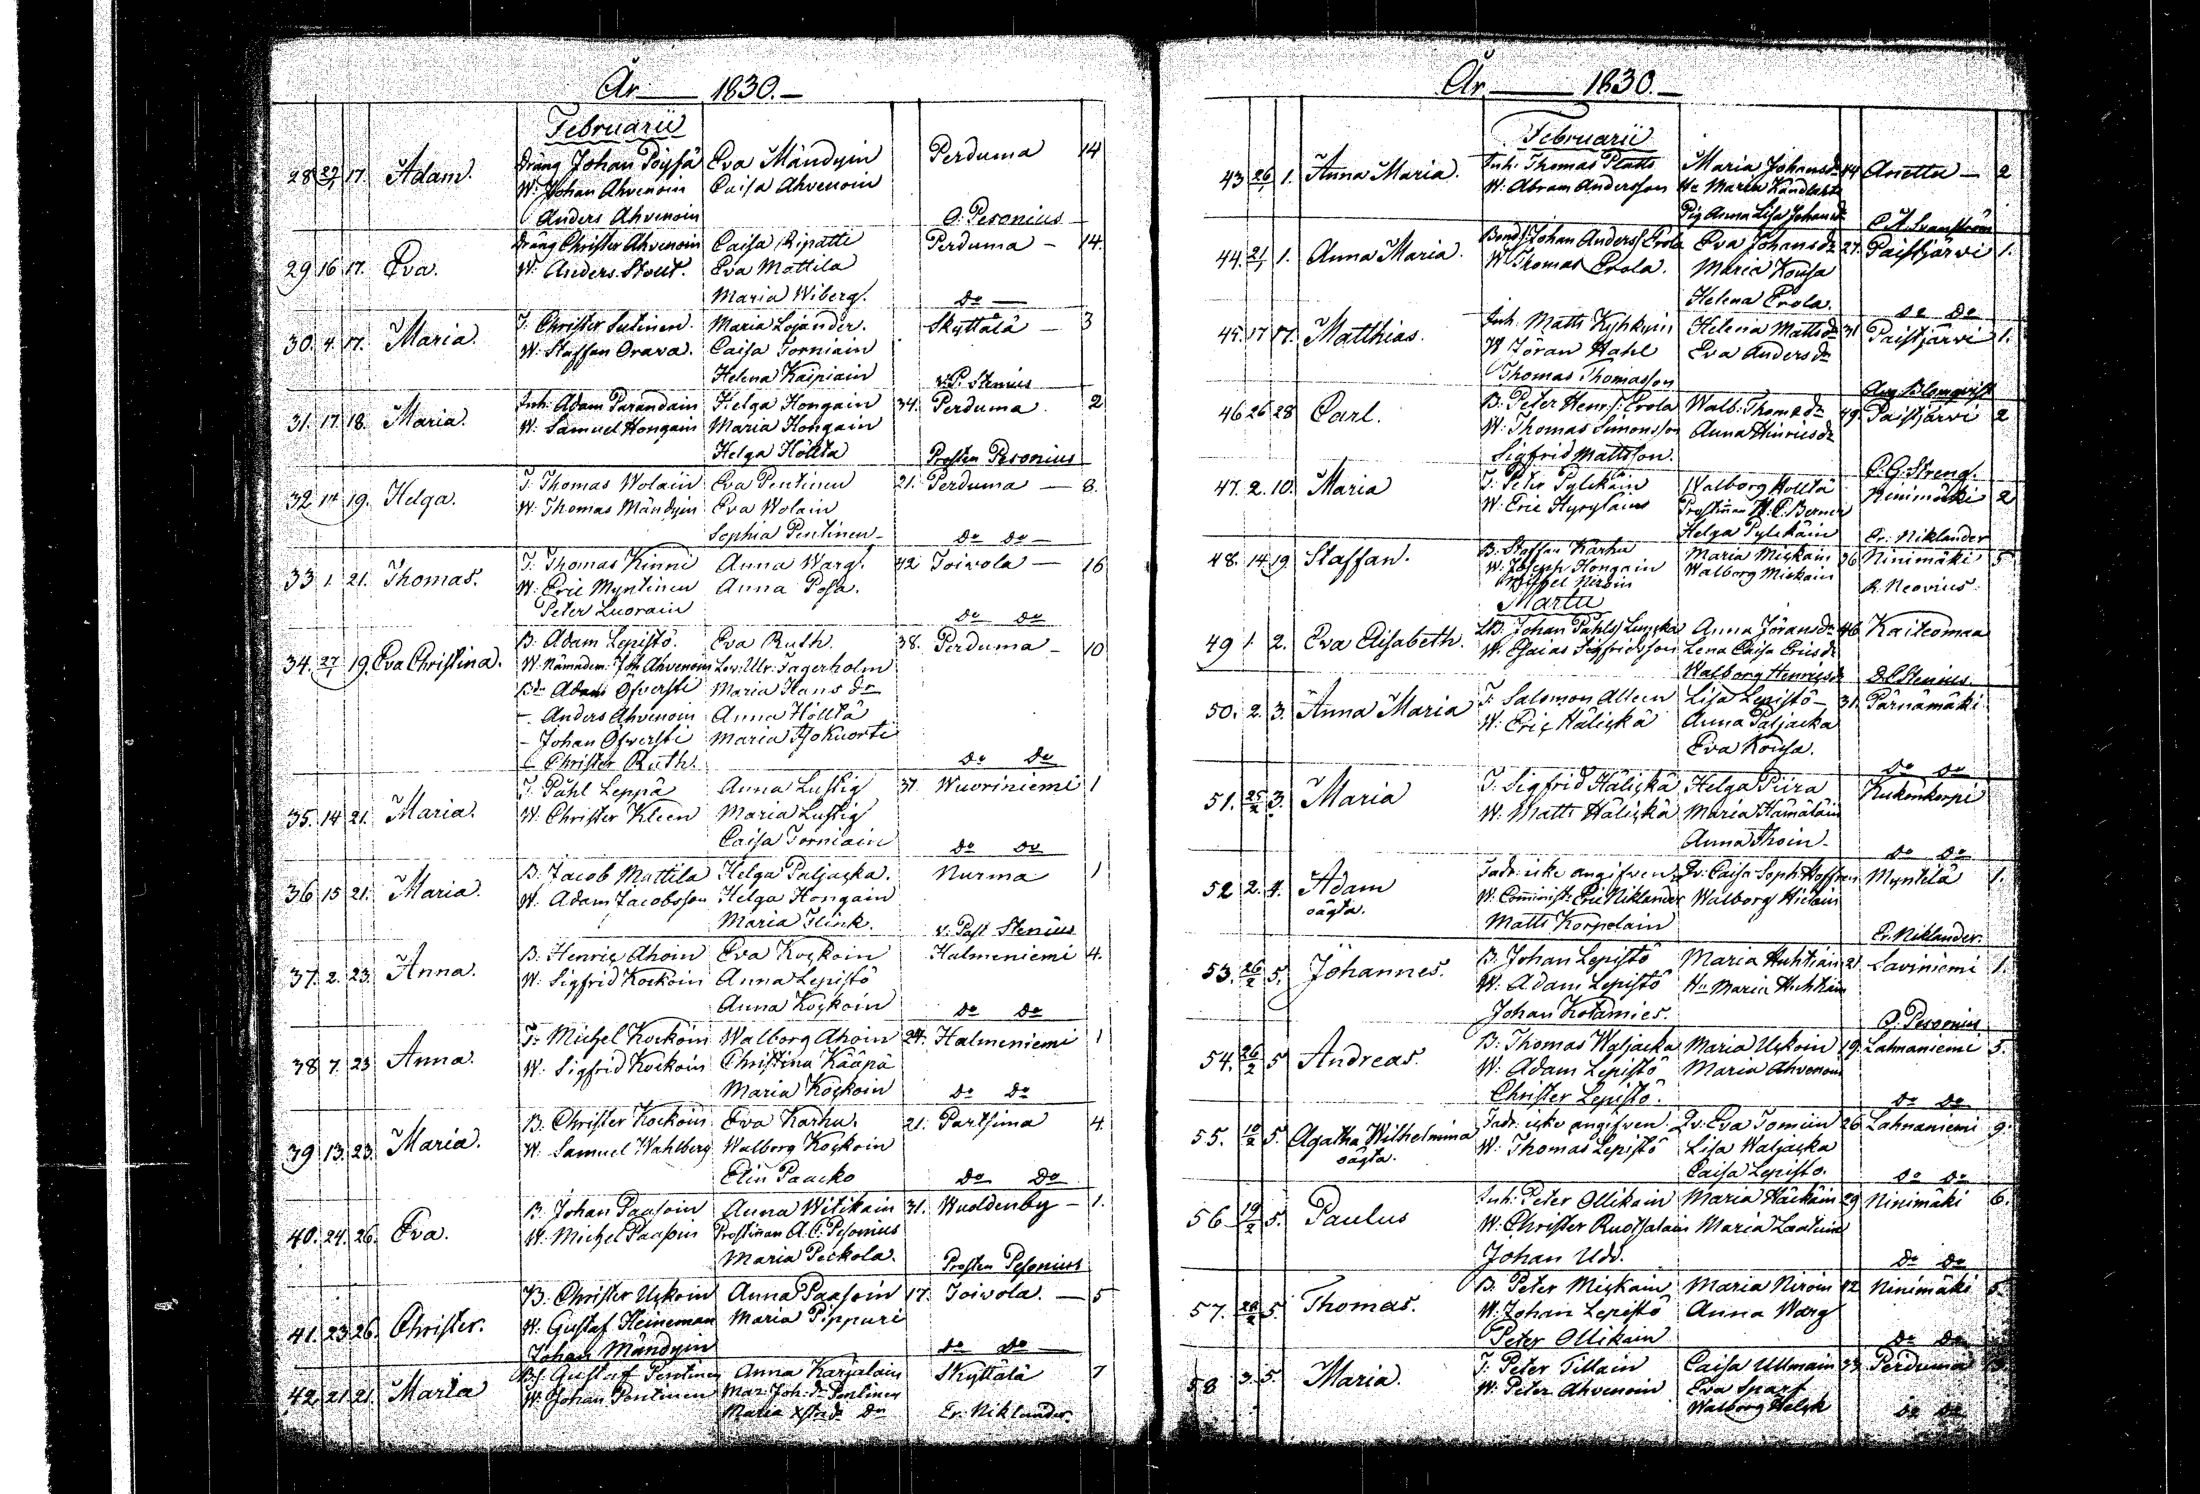 År 1830.—
Februarii
28 27/1 17. Adam. Dräng Johan Pöyhä Eva Mändyin Perduma 14
W. Johan Ahvenoin Caisa Ahvenoin
Anders Ahvenoin O. Pesonius
29 16 17. Eva. Dräng Christer Ahvenoin Caisa Ripatti Perduma — 14.
W. Anders Stout. Eva Mattila
Maria Wiberg. Do —
30. 4. 17. Maria. I. Christer Sutinen. Maria Lojander. Skyttälä — 3
W. Staffan Orava. Caisa Torniain
Helena Kaipiain v. P. Stenius
31. 17. 18. Maria. Inh. Adam Parandain Helga Hongain 34. Perduma. 2
W. Samuel Hongain Maria Hongain
Helga Hölttä Prosten Pesonius
32 14 19. Helga. T. Thomas Wolain Eva Pentinen 21. Perduma — 8.
W. Thomas Mändyin Eva Wolain
Sophia Pentinen Do Do —
33 1. 21. Thomas. T. Thomas Kinni Anna Warg. 42 Toivola — 16
W. Eric Myntinen Anna Posa.
Peter Luorain Do Do
34. 27/1 19. Eva Christina. B. Adam Lepistö. Eva Ruth. 38. Perduma — 10
W. Nämndem. Joh. Ahvenoin Lov. Ulr. Jagerholm
Bd. Adam Öfversti Maria Hans dr
— Anders Ahvenoin Anna Hölttä
— Johan Öfversti Maria Isokuorti
— Christer Ruth. Do Do
35. 14 21. Maria. T. Påhl Leppä Anna Lustig 37 Wuoriniemi 1
W. Christer Kleen Maria Lustig
Caisa Torniain Do Do
36 15 21. Maria. B. Jacob Mattila Helga Paljacka. Nurma 1
W. Adam Jacobsson Helga Hongain
Maria Flink. v. Past Stenius
37. 2. 23. Anna. B. Henric Ahoin Eva Kockoin Halmeniemi 4.
W. Sigfrid Kockoin Anna Lepistö
Anna Kockoin Do Do
38 7. 23 Anna. T. Michel Kockoin Walborg Ahoin 24. Halmeniemi 1
W. Sigfrid Kockoin Christina Kääpä
Maria Kockoin Do Do
39 13. 23. Maria. B. Christer Kockoin Eva Karhu. 21. Partsima 4.
W. Samuel Wahlberg Walborg Kockoin
Elin Paacko Do Do
40. 24. 26. Eva. B. Johan Paasoin Anna Witikain 31. Wuoldenby — 1.
W. Michel Paasoin Prostinnan A. C. Pesonius
Maria Peckola. Prosten Pesonius
41. 23 26. Christer. B. Christer Uckoin Anna Paasoin 17. Toivola. — 5
W. Gustaf Heineman Maria Pippuri
Johan Mändyin Do Do —
42. 21 21. Maria B.s. Gustaf Pentinen Anna Karjalain Skyttälä 7
W. Johan Pentinen Mar. Joh. dr Pentinen
Er. Niklander.
År 1830.—
Februarii
43 26/1 1. Anna Maria. Inh. Thomas Platts Maria Johansdr 44 Arietta — 2
W. Abram Andersson Hu Maria
Pig Anna Lisa Johansdr C. A. Svanström
44. 21/1 1. Anna Maria. Johan Anderss. Erola Eva Johansdr 27. Paistjärvi 1.
W Thomas Erola. Maria Kousa
Helena Erola. Do Do
45. 17 17. Matthias. Inh. Matts Kyhkyin Helena Mattsdr 31 Paistjärvi 1.
W Jöran Hahl Eva Andersdr
Thomas Thomasson Aug Blomqvist
46 26 28 Carl. B. Peter Henrs. Erola Walb: Thomædr 49. Paistjärvi 2
W. Thomas Simonsson Anna Hinricsdr
Sigfrid Mattsson. C. G. Streng.
47. 2. 10. Maria T. Peter Pylckäin Walborg Hölttä Ninimäki 2
W. Eric Hyrylain Prostinnan Berner
Helga Pylckäin Er. Niklander
48. 14 19 Staffan. B. Staffan Karhu Maria Mickain 36 Ninimäki 5
W. Joseph Hongain Walborg Mickain
Michel Niroin R. Neovius.
Martii
49 1. 2. Eva Elisabeth. Johan Påhls. Anna Jöransdr 46 Kaiteomaa
W. Esaias Sigfridsson Lena Caisa Ericsdr
Walborg Henricsdr Stenius.
50. 2. 3. Anna Maria T. Salomon Alleen Lisa Lepistö — 31. Pärnämäki
W. Eric Hälickä Anna Paljacka
Eva Kousa. Do Do
51. 25/2 3. Maria T. Sigfrid Hälickä Helga Piira Kukonkorpi
W. Matts Hälickä Maria Hämäläin
Anna Ihoin Do Do
52 2. 4. Adam Fadr. icke angifven Qv. Caisa Soph. Hoffren Myntilä 1.
oägta. W. Commissr. Eric Niklander Walborg Hietain
Matts Korpelain Er. Niklander.
53. 26/2 5. Johannes. B. Johan Lepistö Maria Huhtiain 21 Saviniemi 1.
W. Adam Lepistö Hu Maria Huhtiain
Johan Kotamies. O. Pesonius
54. 26/2 5 Andreas. B. Thomas Waljacka Maria Uckoin 19. Lahnaniemi 5.
W. Adam Lepistö Maria Ahvenoin
Christer Lepistö. Do Do
55. 10/2 5. Agatha Wilhelmina Fadr. icke angifven. Qv. Eva Tomiin 26 Lahnaniemi 9.
oägta. W. Thomas Lepistö Lisa Waljacka
Caisa Lepistö. Do Do
56 19/2 5. Paulus Inh. Peter Ollikain Maria Häckäin 29 Ninimäki 6.
W. Christer Ruotsalain Maria Laatuin
Johan Udd. Do Do
57. 28/2 5. Thomas. B. Peter Mickain Maria Niroin 42 Ninimäki 5.
W. Johan Lepistö Anna Warg
Peter Ollikain Do Do
58 3. 5. Maria. T. Peter Tillain Caisa Ullmain 33 Perduma
W. Peter Ahvenoin Eva Sparf
Walborg Do Do